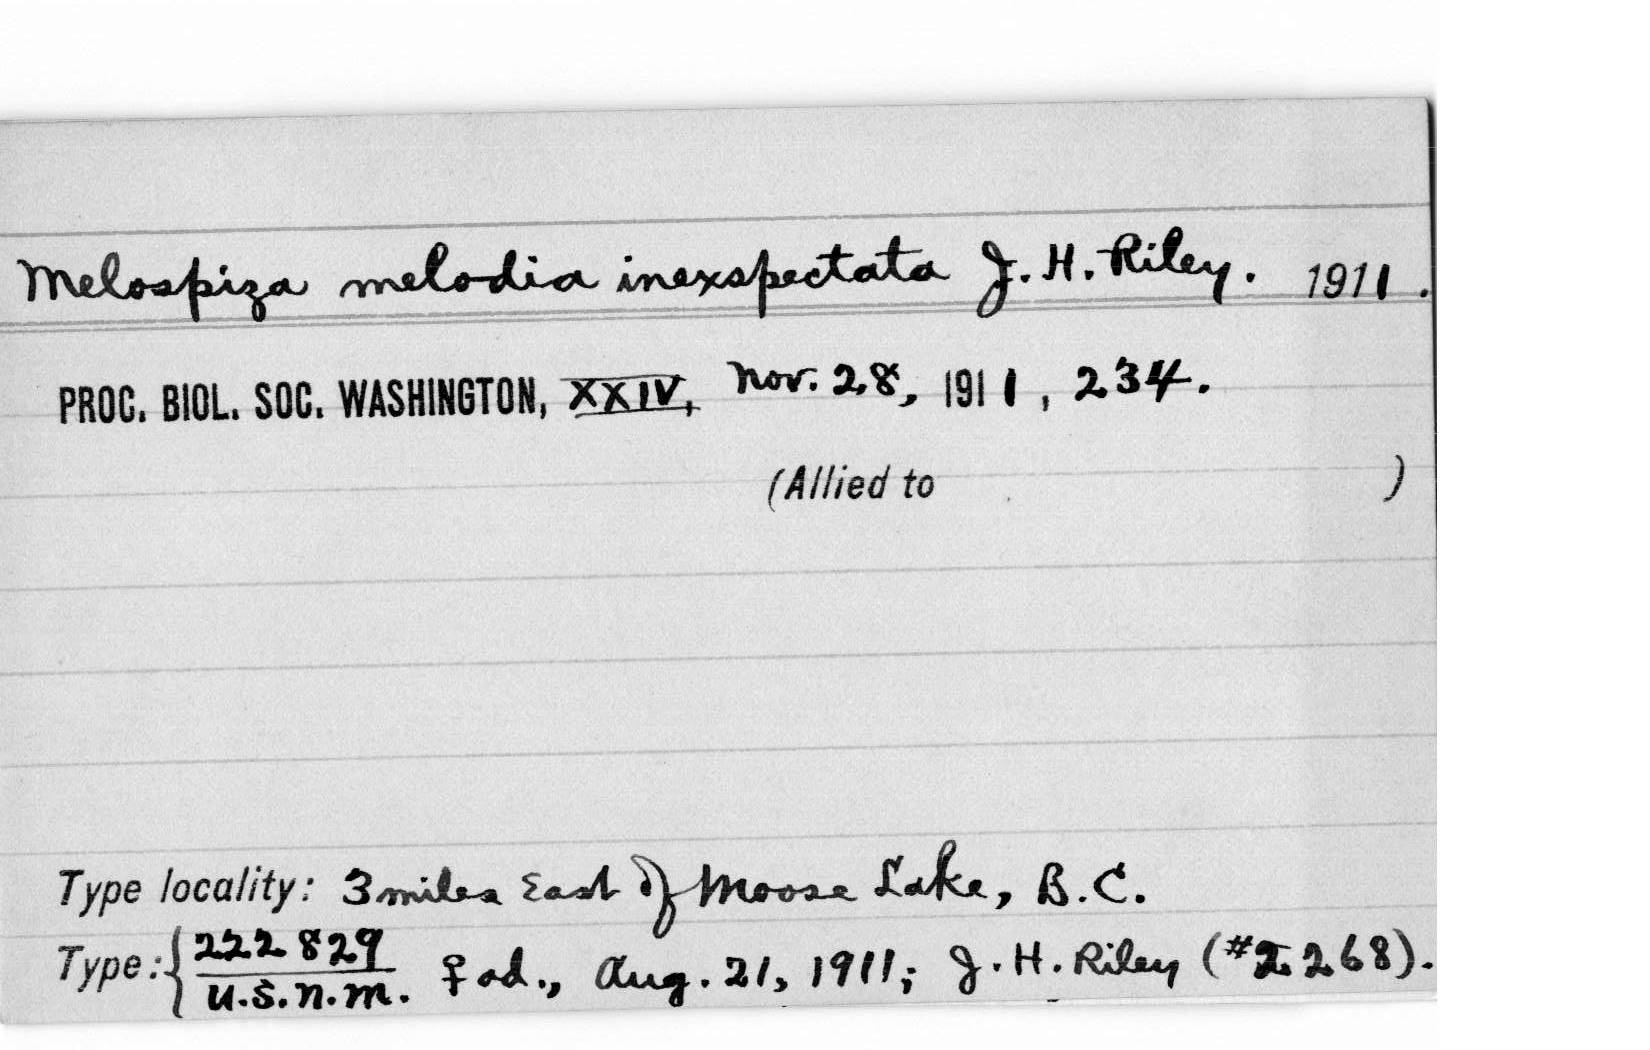 Melospiza melodia inexspectata J. H. Riley. 1911.
PROC. BIOL. SOC. WASHINGTON, XXIV, Nov. 28, 1911, 234.
(Allied to )
Type locality: 3 miles East of Moose Lake, B.C.
Type: { 222829
U.S.N.M. ♀ ad., Aug. 21, 1911; J. H. Riley (#2268).